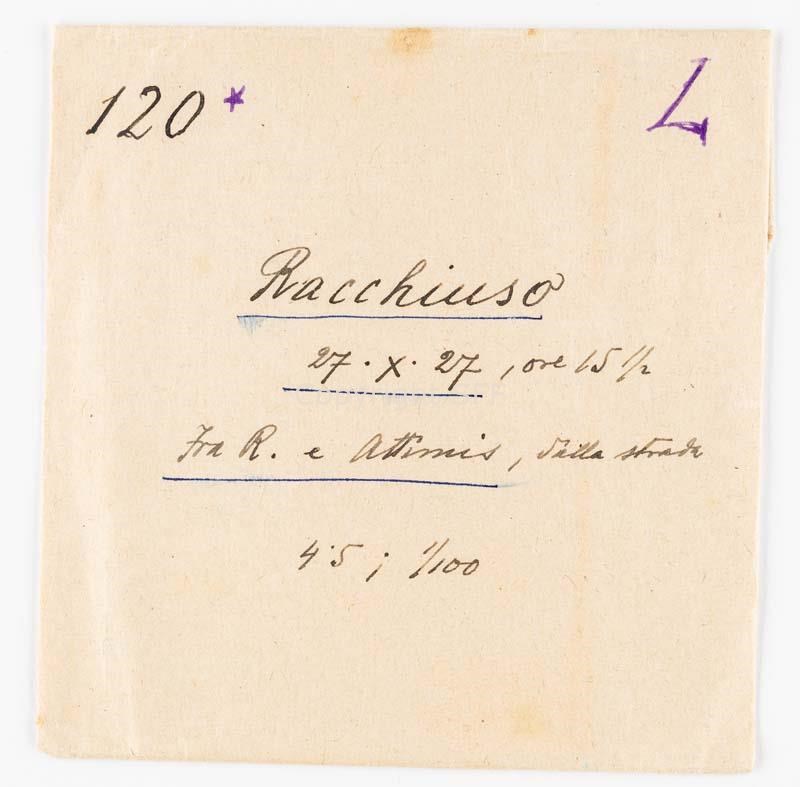 120* L
Racchiuso
27.X.27, ore 15 1/2
Fra R. e Attimis, dalla strada
4·5; 1/100